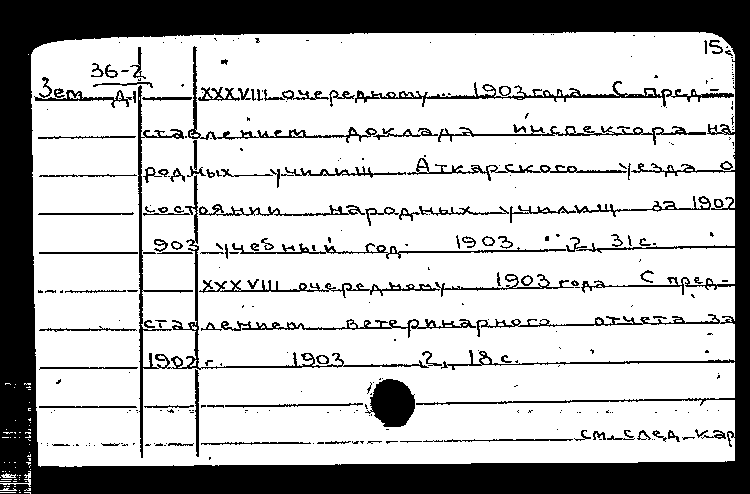 15.
36-2
Зем. д1 XXXVIII очередному... 1903 года С пред-
ставлением доклада инспектора на
родных училищ Аткарского уезда о
состоянии народных училищ за 1902
903 учебный год. 1903. 2, 31 с.
XXXVIII очередному... 1903 года С пред-
ставлением ветеринарного отчета за
1902 г. 1903 2, 18 с.
см. след. кар